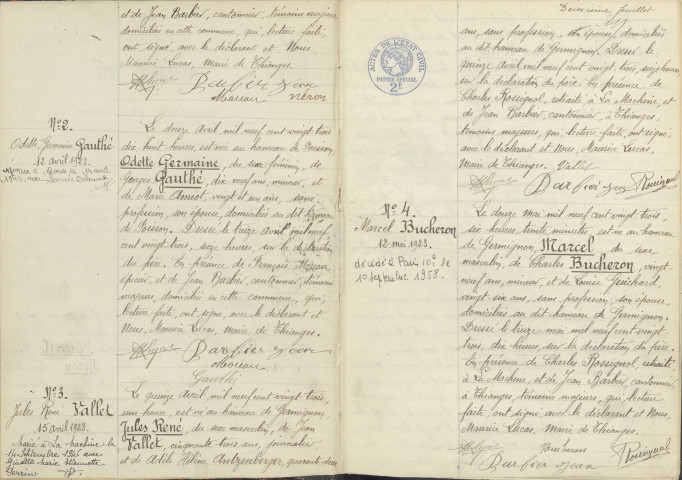 et de Jean Barbier, cantonnier, témoins majeurs
domiciliés en cette commune, qui, lecture faite,
ont signé, avec le déclarant et Nous,
Maurice Lucas, maire de Thianges.
Barbier Jean
Néron
N° 2.
Odette Germaine Gauthé
12 avril 1923.
Le douze avril mil neuf cent vingt trois
dix huit heures, est née au hameau de
Odette Germaine, du sexe féminin, de
Georges Gauthé, dix neuf ans, mineur, et
de Marie Amiot, vingt et un ans, sans
profession, son épouse, domiciliés au dit hameau
de Dressé le treize avril mil neuf
cent vingt trois, seize heures, sur la déclaration
du père. En présence de François Moreau
épicier, et de Jean Barbier, cantonnier, témoins
majeurs, domiciliés en cette commune, qui,
lecture faite, ont signé, avec le déclarant et
Nous, Maurice Lucas, maire de Thianges.
Barbier Jean
Moreau
Gauthé
N° 3
Jules René Vallet
15 avril 1923.
Marié à La Machine le
14 Septembre 1946 avec
Le quinze avril mil neuf cent vingt trois,
une heure, est né au hameau de Germignon,
Jules René, du sexe masculin, de Jean
Vallet, cinquante trois ans, journalier
et de Adèle Hélène Antzenberger, quarante deux
Deuxième feuillet
ans, sans profession, son épouse, domiciliés
au dit hameau de Germignon. Dressé le
quinze avril mil neuf cent vingt trois, seize heures
sur la déclaration du père. En présence de
Charles Rossignol, retraité à La Machine, et
de Jean Barbier, cantonnier, à Thianges,
témoins majeurs, qui, lecture faite, ont signé,
avec le déclarant et Nous, Maurice Lucas,
Maire de Thianges. Vallet
Barbier Jean Rossignol
ACTES DE L'ÉTAT CIVIL
PAPIER SPÉCIAL
2F
N° 4.
Marcel Bucheron
12 mai 1923.
décédé à Paris 10e le
10 septembre 1958.
Le douze mai mil neuf cent vingt trois,
six heures trente minutes, est né au hameau
de Germignon, Marcel, du sexe
masculin, de Charles Bucheron, vingt
neuf ans, mineur, et de Louise Guichard,
vingt six ans, sans profession, son épouse,
domiciliés au dit hameau de Germignon.
Dressé le treize mai mil neuf cent vingt
trois, dix heures, sur la déclaration du père.
En présence de Charles Rossignol, retraité
à La Machine, et de Jean Barbier, cantonnier,
à Thianges, témoins majeurs, qui, lecture
faite, ont signé, avec le déclarant et Nous,
Maurice Lucas, Maire de Thianges.
Bucheron
Barbier Jean Rossignol